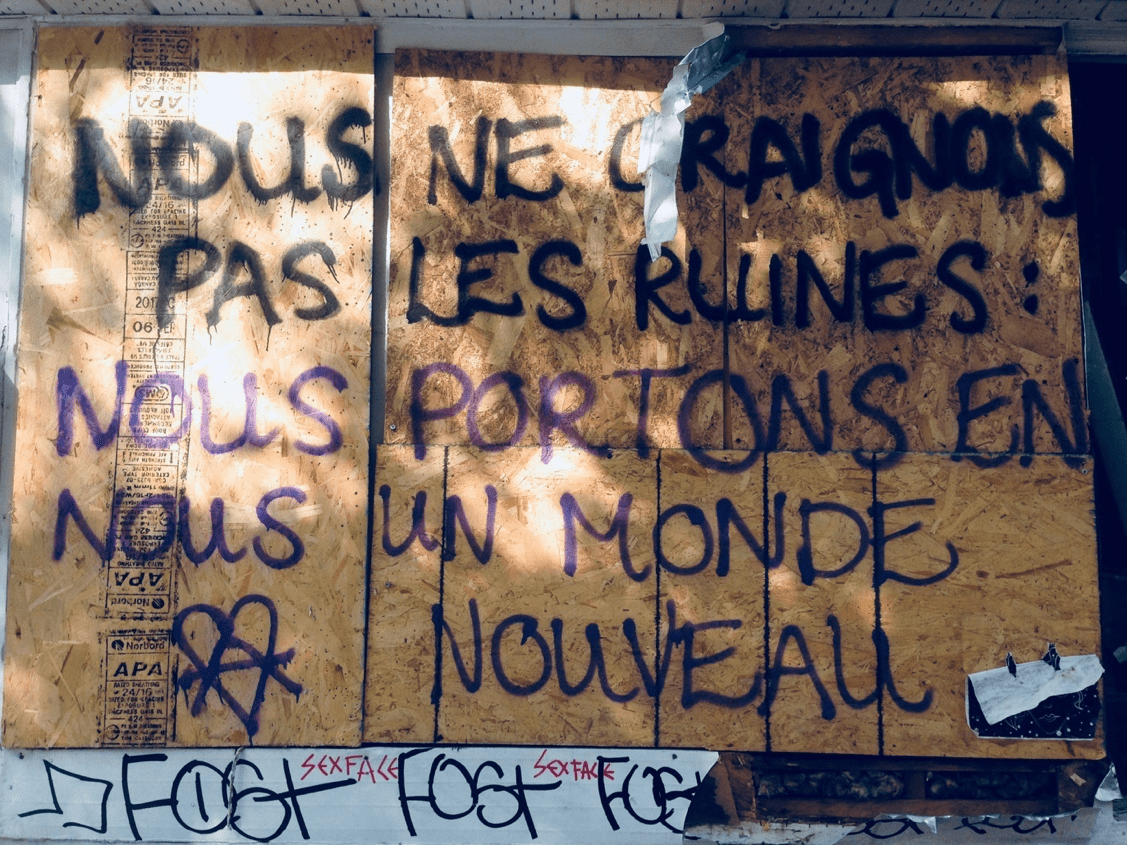 NOUS NE CRAIGNONS
PAS LES RUINES :
NOUS PORTONS EN
NOUS UN MONDE
NOUVEAU
Norbord
APA
RATED SHEATHING
24/16
SIZED FOR SPACING
EXPOSURE 1
424
2017
06
FOST SEXFACE FOST SEXFACE FOST